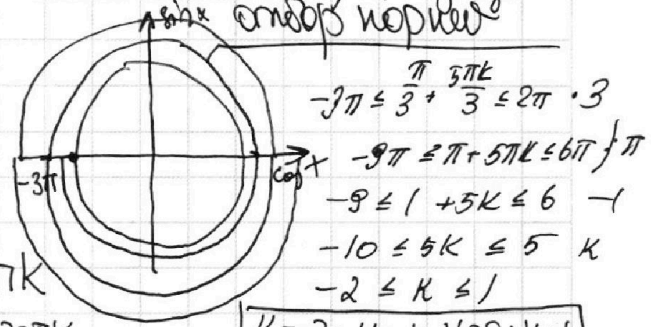 sinx отбор корней
-3π ≤ π/3 + 5πk/3 ≤ 2π · 3
cosx -9π ≤ π + 5πk ≤ 6π } π
-3π
-9 ≤ 1 + 5k ≤ 6 -1
-10 ≤ 5k ≤ 5 k
-2 ≤ k ≤ 1